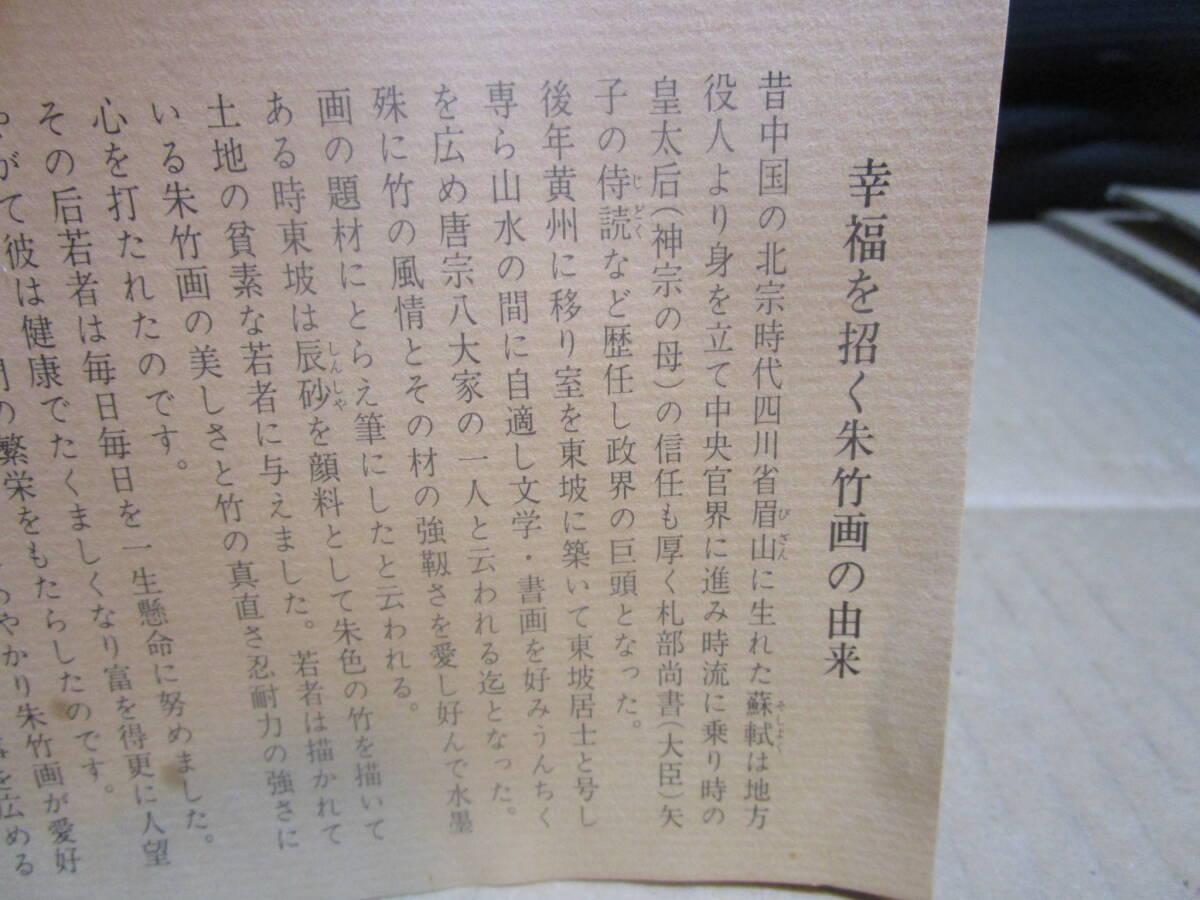 幸福を招く朱竹画の由来
昔中国の北宗時代四川省眉山に生れた蘇軾は地方
びざん
そしょく
役人より身を立て中央官界に進み時流に乗り時の
皇太后(神宗の母)の信任も厚く札部尚書(大臣)矢
子の侍読など歴任し政界の巨頭となった。
じどく
後年黄州に移り室を東坡に築いて東坡居士と号し
専ら山水の間に自適し文学・書画を好みうんちく
を広め唐宗八大家の一人と云われる迄となった。
殊に竹の風情とその材の強靱さを愛し好んで水墨
画の題材にとらえ筆にしたと云われる。
ある時東坡は辰砂を顔料として朱色の竹を描いて
しんしゃ
土地の貧素な若者に与えました。若者は描かれて
いる朱竹画の美しさと竹の真直さ忍耐力の強さに
心を打たれたのです。
その后若者は毎日毎日を一生懸命に努めました。
やがて彼は健康でたくましくなり富を得更に人望
の繁栄をもたらしたのです。
やかり朱竹画が愛好
を広める